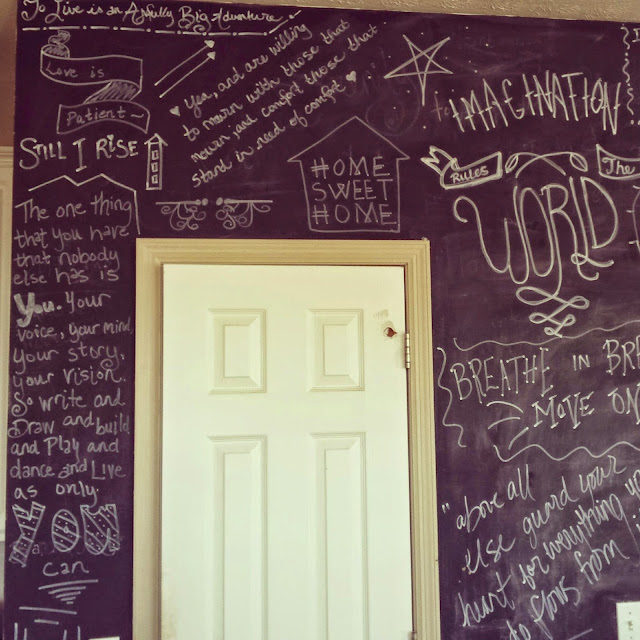 To Live is an Awfully Big Adventure
Love is
Patient
Yea, and are willing
to mourn with those that
mourn and comfort those that
stand in need of comfort
STILL I RISE
The one thing
that you have
that nobody
else has is
You. Your
voice, your mind,
your story,
your vision.
So write and
Draw and build
and Play and
dance and Live
as only
YOU
can
HOME
SWEET
HOME
IMAGINATION
RULES The
WORLD
BREATHE IN BRE
MOVE ON
"above all
else guard your
heart for everything
flows from